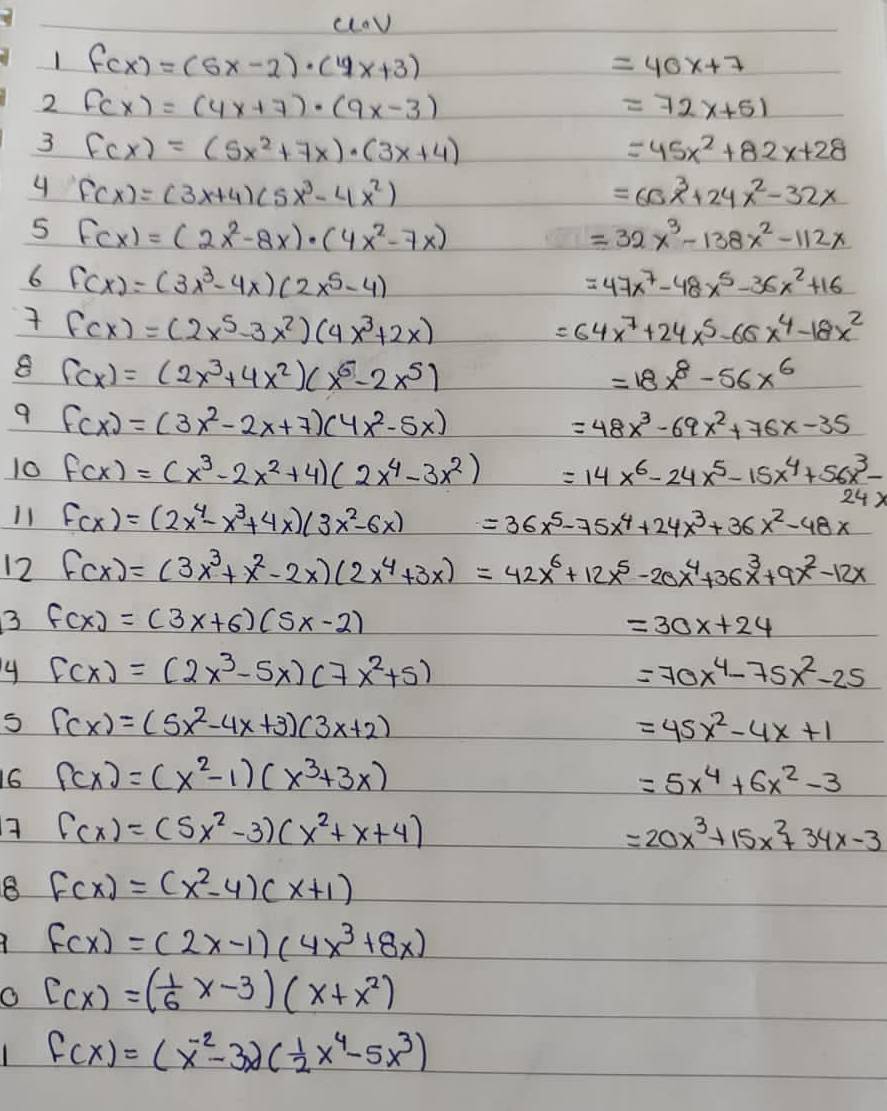 1 f(x) = (5x-2)·(4x+3) = 40x+7
2 f(x) = (4x+7)·(9x-3) = 72x+51
3 f(x) = (5x²+7x)·(3x+4) = 45x²+82x+28
4 f(x) = (3x+4)(5x³-4x²) = 60x³+24x²-32x
5 f(x) = (2x²-8x)·(4x²-7x) = 32x³-138x²-112x
6 f(x) = (3x³-4x)(2x⁵-4) = 47x⁷-48x⁵-36x²+16
7 f(x) = (2x⁵-3x²)(4x³+2x) = 64x⁷+24x⁵-60x⁴-18x²
8 f(x) = (2x³+4x²)(x⁶-2x⁵) = 18x⁸-56x⁶
9 f(x) = (3x²-2x+7)(4x²-5x) = 48x³-69x²+76x-35
10 f(x) = (x³-2x²+4)(2x⁴-3x²) = 14x⁶-24x⁵-15x⁴+56x³-
24x
11 f(x) = (2x⁴-x³+4x)(3x²-6x) = 36x⁵-75x⁴+24x³+36x²-48x
12 f(x) = (3x³+x²-2x)(2x⁴+3x) = 42x⁶+12x⁵-20x⁴+36x³+9x²-12x
3 f(x) = (3x+6)(5x-2) = 30x+24
4 f(x) = (2x³-5x)(7x²+5) = 70x⁴-75x²-25
5 f(x) = (5x²-4x+3)(3x+2) = 45x²-4x+1
16 f(x) = (x²-1)(x³+3x) = 5x⁴+6x²-3
7 f(x) = (5x²-3)(x²+x+4) = 20x³+15x²+34x-3
8 f(x) = (x²-4)(x+1)
f(x) = (2x-1)(4x³+8x)
0 f(x) = (1/6 x-3)(x+x²)
1 f(x) = (x⁻²-3x)(1/2 x⁴-5x³)